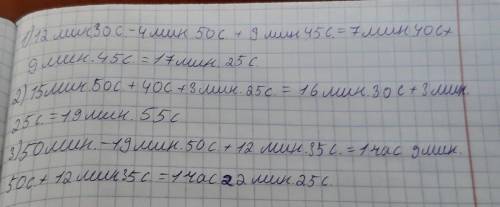 1) 12 мин 30 с - 4 мин 50 с + 9 мин 45 с = 7 мин 40 с +
9 мин. 45 с = 17 мин. 25 с
2) 15 мин. 50 с + 40 с + 3 мин. 25 с = 16 мин. 30 с + 3 мин.
25 с = 19 мин. 55 с
3) 50 мин. - 19 мин. 50 с + 12 мин. 35 с. = 1 час 9 мин.
50 с + 12 мин 35 с = 1 час 22 мин. 25 с.